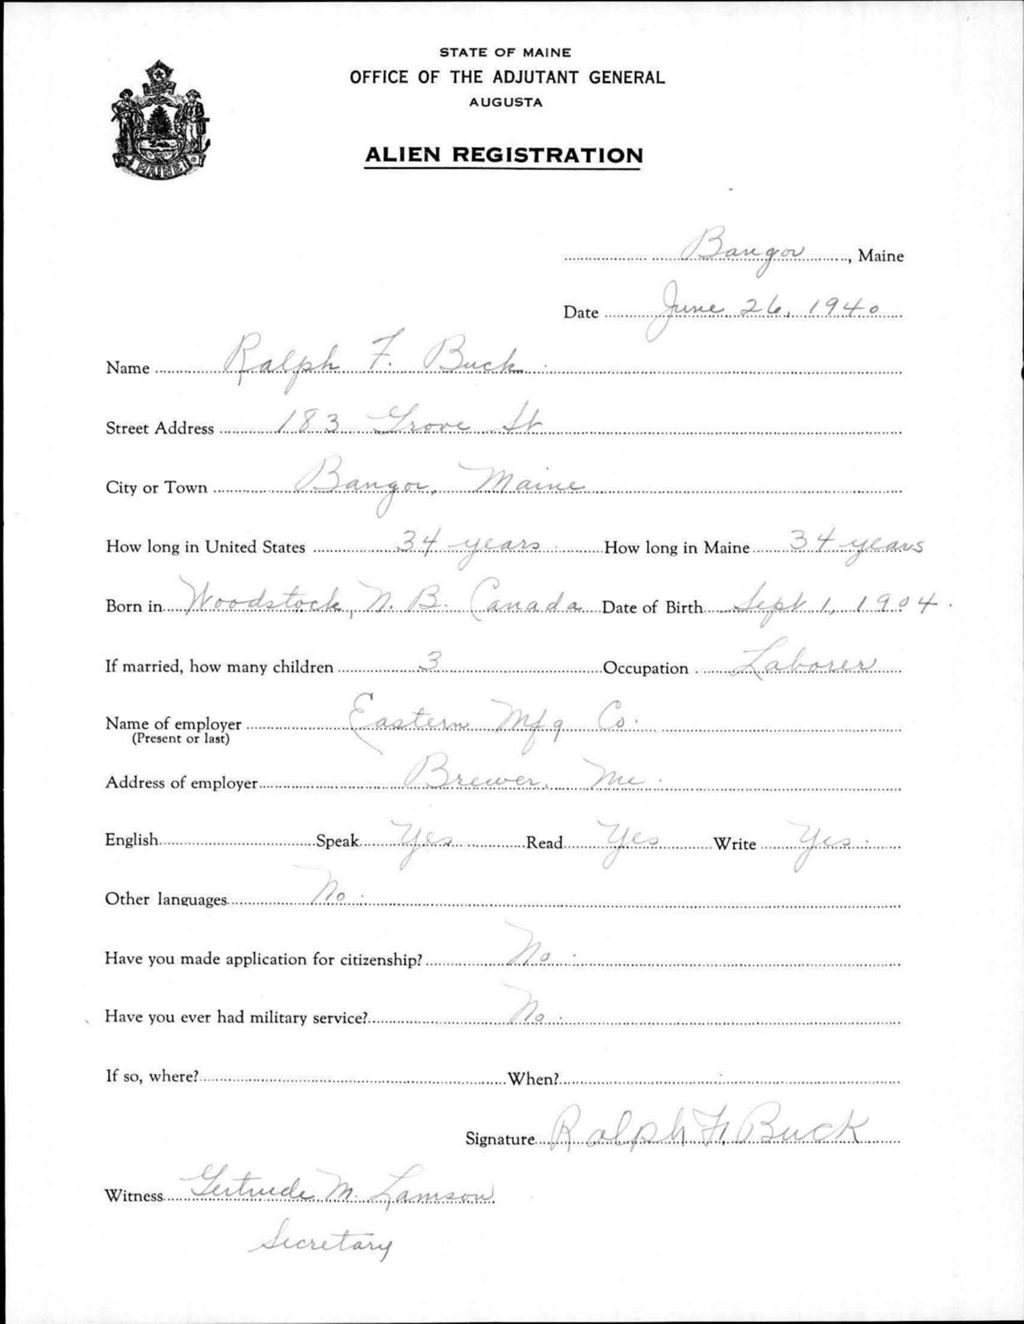 STATE OF MAINE
OFFICE OF THE ADJUTANT GENERAL
AUGUSTA
ALIEN REGISTRATION
MAINE
Bangor, Maine
Date June 26, 1940
Name Ralph F. Buck
Street Address 183 Grove St
City or Town Bangor, Maine
How long in United States 34 years How long in Maine 34 years
Born in Woodstock, N. B. Canada Date of Birth Sept 1, 1904.
If married, how many children 3 Occupation Laborer
Name of employer Eastern Mfg Co.
(Present or last)
Address of employer Brewer, Me.
English Speak Yes Read Yes Write Yes.
Other languages No.
Have you made application for citizenship? No.
Have you ever had military service? No.
If so, where? When?
Signature Ralph F. Buck
Witness Gertrude M. Lamson
Secretary